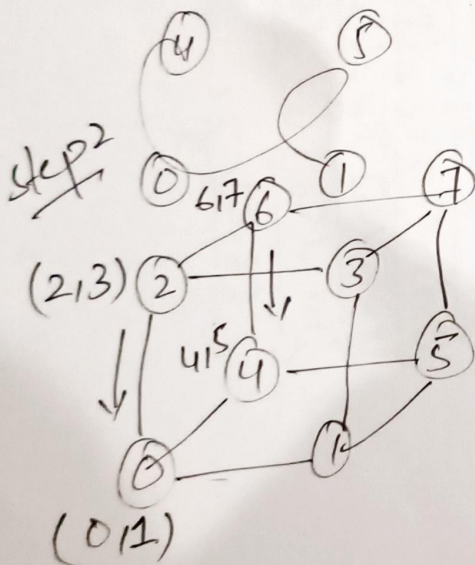 4 5
step2
0 1
6,7 6 7
(2,3) 2 3
4,5 4 5
0 1
(0,1)